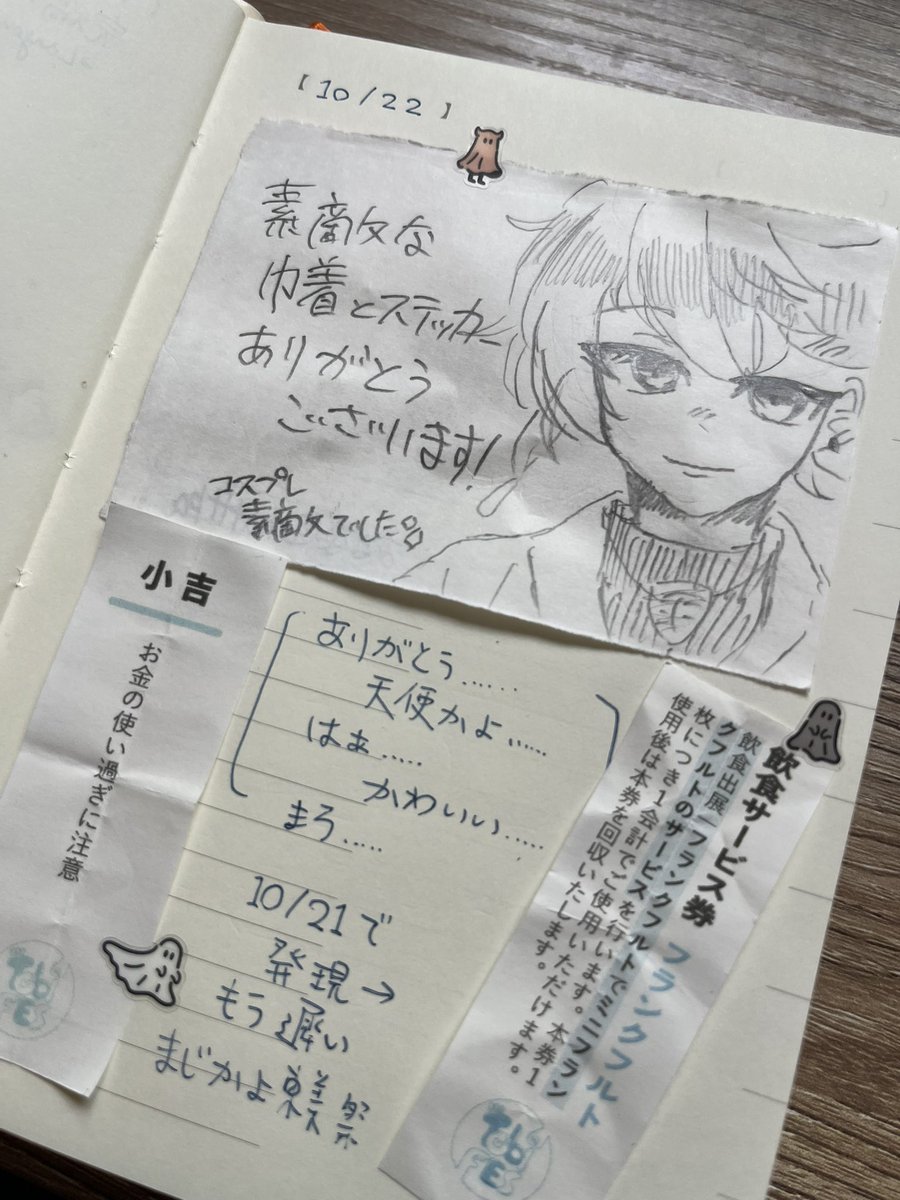 【10/22】
素敵な
巾着とステッカー
ありがとう
ございます!
コスプレ
素敵でした
小吉
お金の使い過ぎに注意
ありがとう……
天使かよ……
はぁ……
かわいい……
まろ……
10/21で
発現→
もう遅い
まじかよ
飲食サービス券 フランクフルト
飲食出展「フランクフルトでミニフラン
クフルトのサービスを行います。本券1
枚につき1会計でご使用いただけます。
使用後は本券を回収いたします。